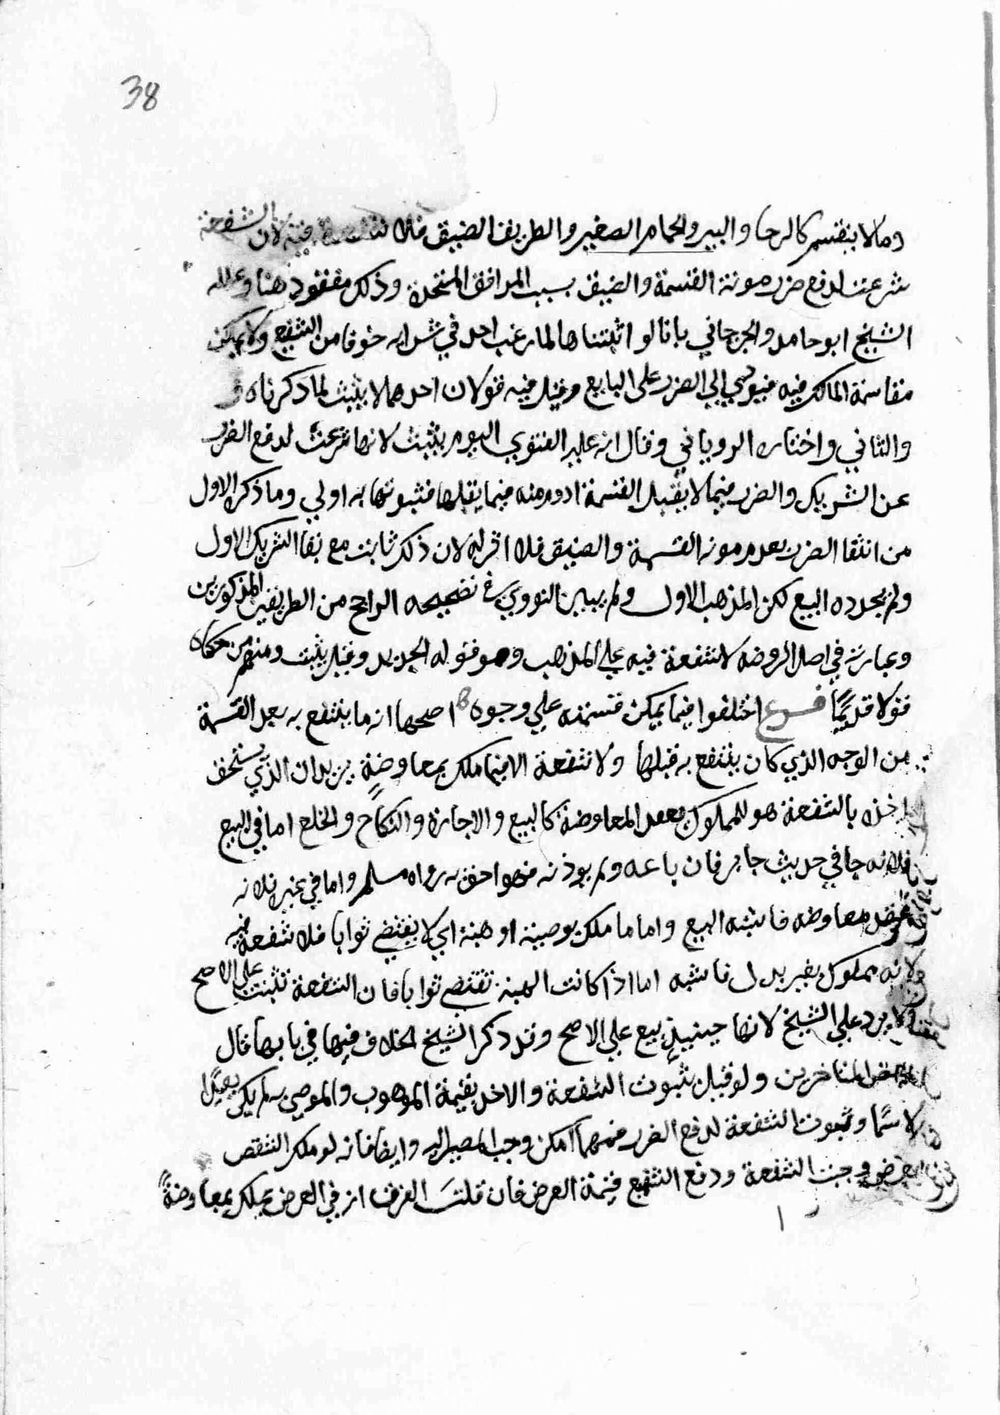 38
وما لا ينقسم كالرحا والبير والحمام الصغير والطريق الضيق فلا شفعة فيه لان الشفعة
شرعت لدفع ضرر مونة القسمة والضيق بسبب المرافق المتخذة وذلك مفقود هنا وعلله
الشيخ ابو حامد والجرجاني بانا لو اثبتناها لما رغب احد في شرايه خوفا من الشفيع ولا يمكن
مقاسمة المالك فيه فيودي الي الضرر على البايع وقيل فيه قولان احدهما لا يثبت لما ذكرناه
والثاني واختاره الروياني وقال ان عليه الفتوي اليوم يثبت لانها شرعت لدفع الضرر
عن الشريك والضرر فيما لا يقبل القسمة ادوم منه فيما يقبلها فثبوتها به اولي وما ذكره الاول
من انتفا الضرر بعدم مونه القسمة والضيق فلا اثر له لان ذلك ثابت مع بقا الشريك الاول
ولم يجدده البيع لكن المذهب الاول ولم يبين النووي في تصحيحه الراجح من الطريقين المذكورين
وعبارته في اصل الروضه لا شفعة فيه علي المذهب وهو قوله الجديد وقيل يثبت ومنهم من حكاه
قولا قديما فرع اختلفوا فيما يمكن قسمته علي وجوه اصحها انه ما ينتفع به بعد القسمة
من الوجه الذي كان ينتفع به قبلها ولا شفعة الا فيما ملك بمعاوضة يريد ان الذي يستحق
اخذه بالشفعة هو المملوك بعقد المعاوضة كالبيع والاجارة والنكاح والخلع اما في البيع
فلانه جا في حديث جابر فان باعه ولم يوذنه فهو احق به رواه مسلم واما في غيره فلانه
عقد معاوضه فاشبه البيع واما ما ملك بوصية او هبة اي لا يقتضي ثوابا فلا شفعة فيه
لانه مملوك بغير بدل فاشبه اما اذا كانت الهبة تقتضي ثوابا فان الشفعة تثبت علي الاصح
ولا يرد علي الشيخ لانها حينيذ بيع علي الاصح وقد ذكر الشيخ الخلاف فيها في بابها قال
بعض المتاخرين ولو قيل بثبوت الشفعة والاخذ بقيمة الموهوب والموصي به لم يكن بعيدا
لا سيما وثبوت الشفعة لدفع الضرر فمهما امكن وجب المصير اليه وايضا فانه لو ملك الشقص
بعرض وجبت الشفعة ودفع الشفيع قيمة العرض فان قلت الفرق ان في العرض تملك بمعاوضة